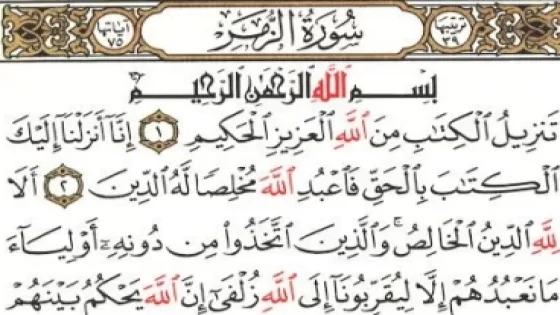 ترتيبها ٣٩ سُورَةُ الزُّمَرِ آياتها ٧٥
بِسْمِ اللَّهِ الرَّحْمَٰنِ الرَّحِيمِ
تَنزِيلُ الْكِتَابِ مِنَ اللَّهِ الْعَزِيزِ الْحَكِيمِ ١ إِنَّا أَنزَلْنَا إِلَيْكَ
الْكِتَابَ بِالْحَقِّ فَاعْبُدِ اللَّهَ مُخْلِصًا لَّهُ الدِّينَ ٢ أَلَا
لِلَّهِ الدِّينُ الْخَالِصُ ۚ وَالَّذِينَ اتَّخَذُوا مِن دُونِهِ أَوْلِيَاءَ
مَا نَعْبُدُهُمْ إِلَّا لِيُقَرِّبُونَا إِلَى اللَّهِ زُلْفَىٰ إِنَّ اللَّهَ يَحْكُمُ بَيْنَهُمْ